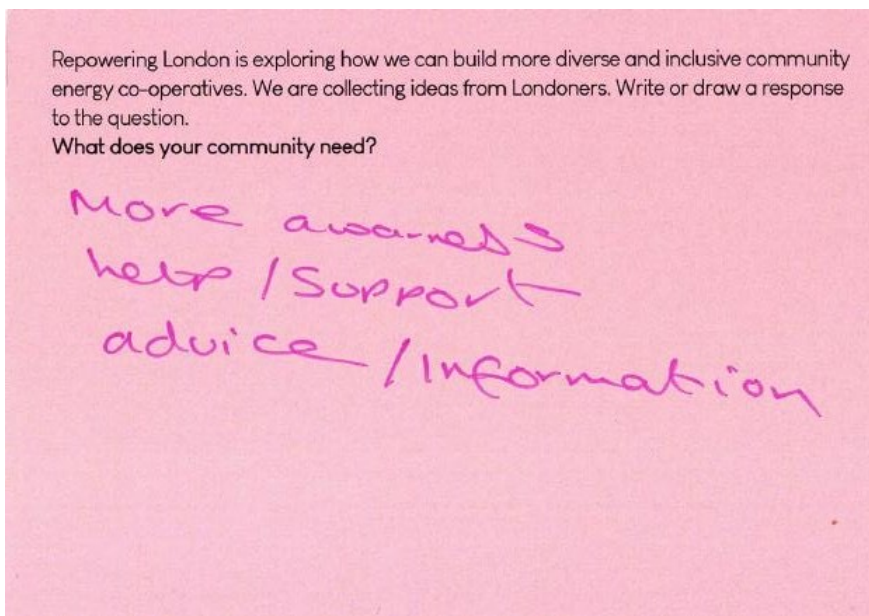 Repowering London is exploring how we can build more diverse and inclusive community
energy co-operatives. We are collecting ideas from Londoners. Write or draw a response
to the question.
What does your community need?
More awarness
help / Support
advice / Information